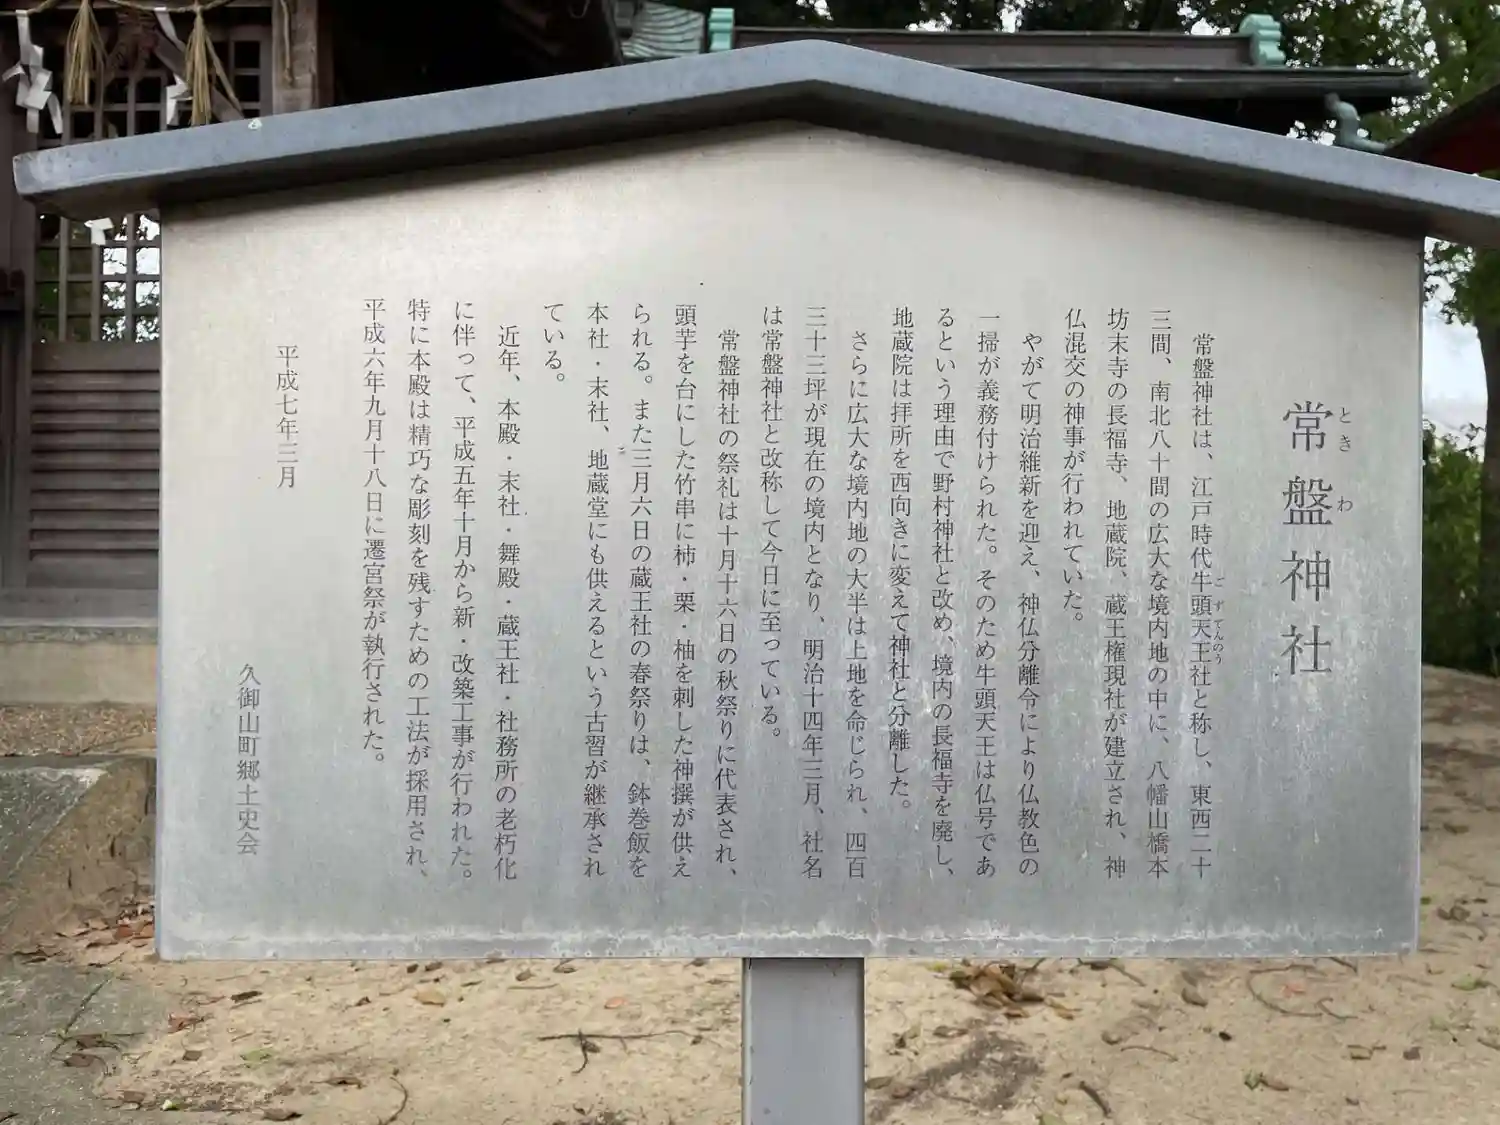 常盤神社
ときわ
常盤神社は、江戸時代牛頭天王社と称し、東西二十
ごずてんのう
三間、南北八十間の広大な境内地の中に、八幡山橋本
坊末寺の長福寺、地蔵院、蔵王権現社が建立され、神
仏混交の神事が行われていた。
やがて明治維新を迎え、神仏分離令により仏教色の
一掃が義務付けられた。そのため牛頭天王は仏号であ
るという理由で野村神社と改め、境内の長福寺を廃し、
地蔵院は拝所を西向きに変えて神社と分離した。
さらに広大な境内地の大半は上地を命じられ、四百
三十三坪が現在の境内となり、明治十四年三月、社名
は常盤神社と改称して今日に至っている。
常盤神社の祭礼は十月十六日の秋祭りに代表され、
頭芋を台にした竹串に柿・栗・柚を刺した神撰が供え
られる。また三月六日の蔵王社の春祭りは、鉢巻飯を
本社・末社、地蔵堂にも供えるという古習が継承され
ている。
近年、本殿・末社・舞殿・蔵王社・社務所の老朽化
に伴って、平成五年十月から新・改築工事が行われた。
特に本殿は精巧な彫刻を残すための工法が採用され、
平成六年九月十八日に遷宮祭が執行された。
平成七年三月
久御山町郷土史会